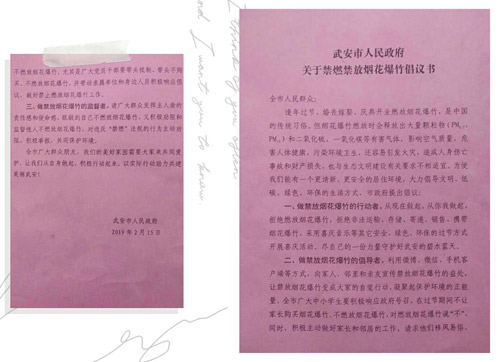 武安市人民政府
关于禁燃禁放烟花爆竹倡议书
全市人民群众:
逢年过节、婚丧嫁娶、庆典开业燃放烟花爆竹,是中国
的传统习俗。但烟花爆竹燃放时会释放出大量颗粒物(PM₂.₅、
PM₁₀)和二氧化硫、一氧化碳等有害气体,影响空气质量,危
害人体健康,污染环境卫生,还容易引发火灾,造成人身伤亡
事故和财产损失,也与生态文明建设有关要求不相适宜。为使
我们能有一个更清新、更优美的居住环境,大力倡导文明、低
碳、绿色、环保的生活方式,市政府提出倡议:
一、做禁放烟花爆竹的行动者。从现在做起,从你我做起,
拒绝燃放烟花爆竹,拒绝非法运输、存储、寄递、销售、携带
烟花爆竹,采用喜庆音乐等其它安全、绿色、环保的过节方式
开展喜庆活动,尽自己的一份力量守护好武安的碧水蓝天。
二、做禁放烟花爆竹的倡导者。利用微博、微信、手机客
户端等方式,向家人、邻里和亲友宣传禁放烟花爆竹的益处,
让禁放烟花爆竹变成大家的自觉行动,凝聚起保护环境的正能
量。全市广大中小学生要积极响应政府号召,在过节期间不让
家长购买烟花爆竹、不燃放烟花爆竹,对燃放烟花爆竹说“不”。
同时,积极主动做好家长和邻居的工作,请求他们移风易俗,
不燃放烟花爆竹。尤其是广大党员干部要带头抵制、带头不购
买、不燃放烟花爆竹,并带动亲属单位和身边人员积极响应倡
议,做好禁止燃放烟花爆竹工作。
三、做禁放烟花爆竹的监督者。请广大群众发挥主人翁的
责任感和使命感,既做到自己不燃放烟花爆竹,又积极劝阻和
监督他人不燃放烟花爆竹,对违反“禁燃”法规的行为主动劝
阻,积极举报,共同保护环境。
全市广大群众朋友,我们的美好家园需要大家来共同爱
护,让我们从自身做起,积极行动起来,以实际行动助力共建
美丽武安!
武安市人民政府
2019年2月15日
I think of you often
nd I want you to know.